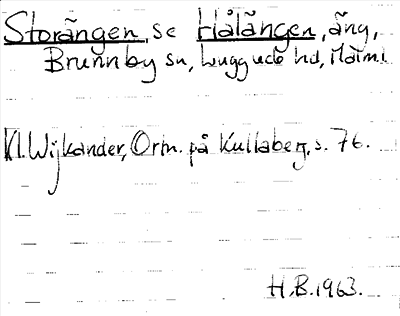 Storängen, se Hålängen, äng,
Brunnby sn, Luggude hd, Malm. l.
Kl. Wijkander, Ortn. på Kullaberg, s. 76.
H.B. 1963.